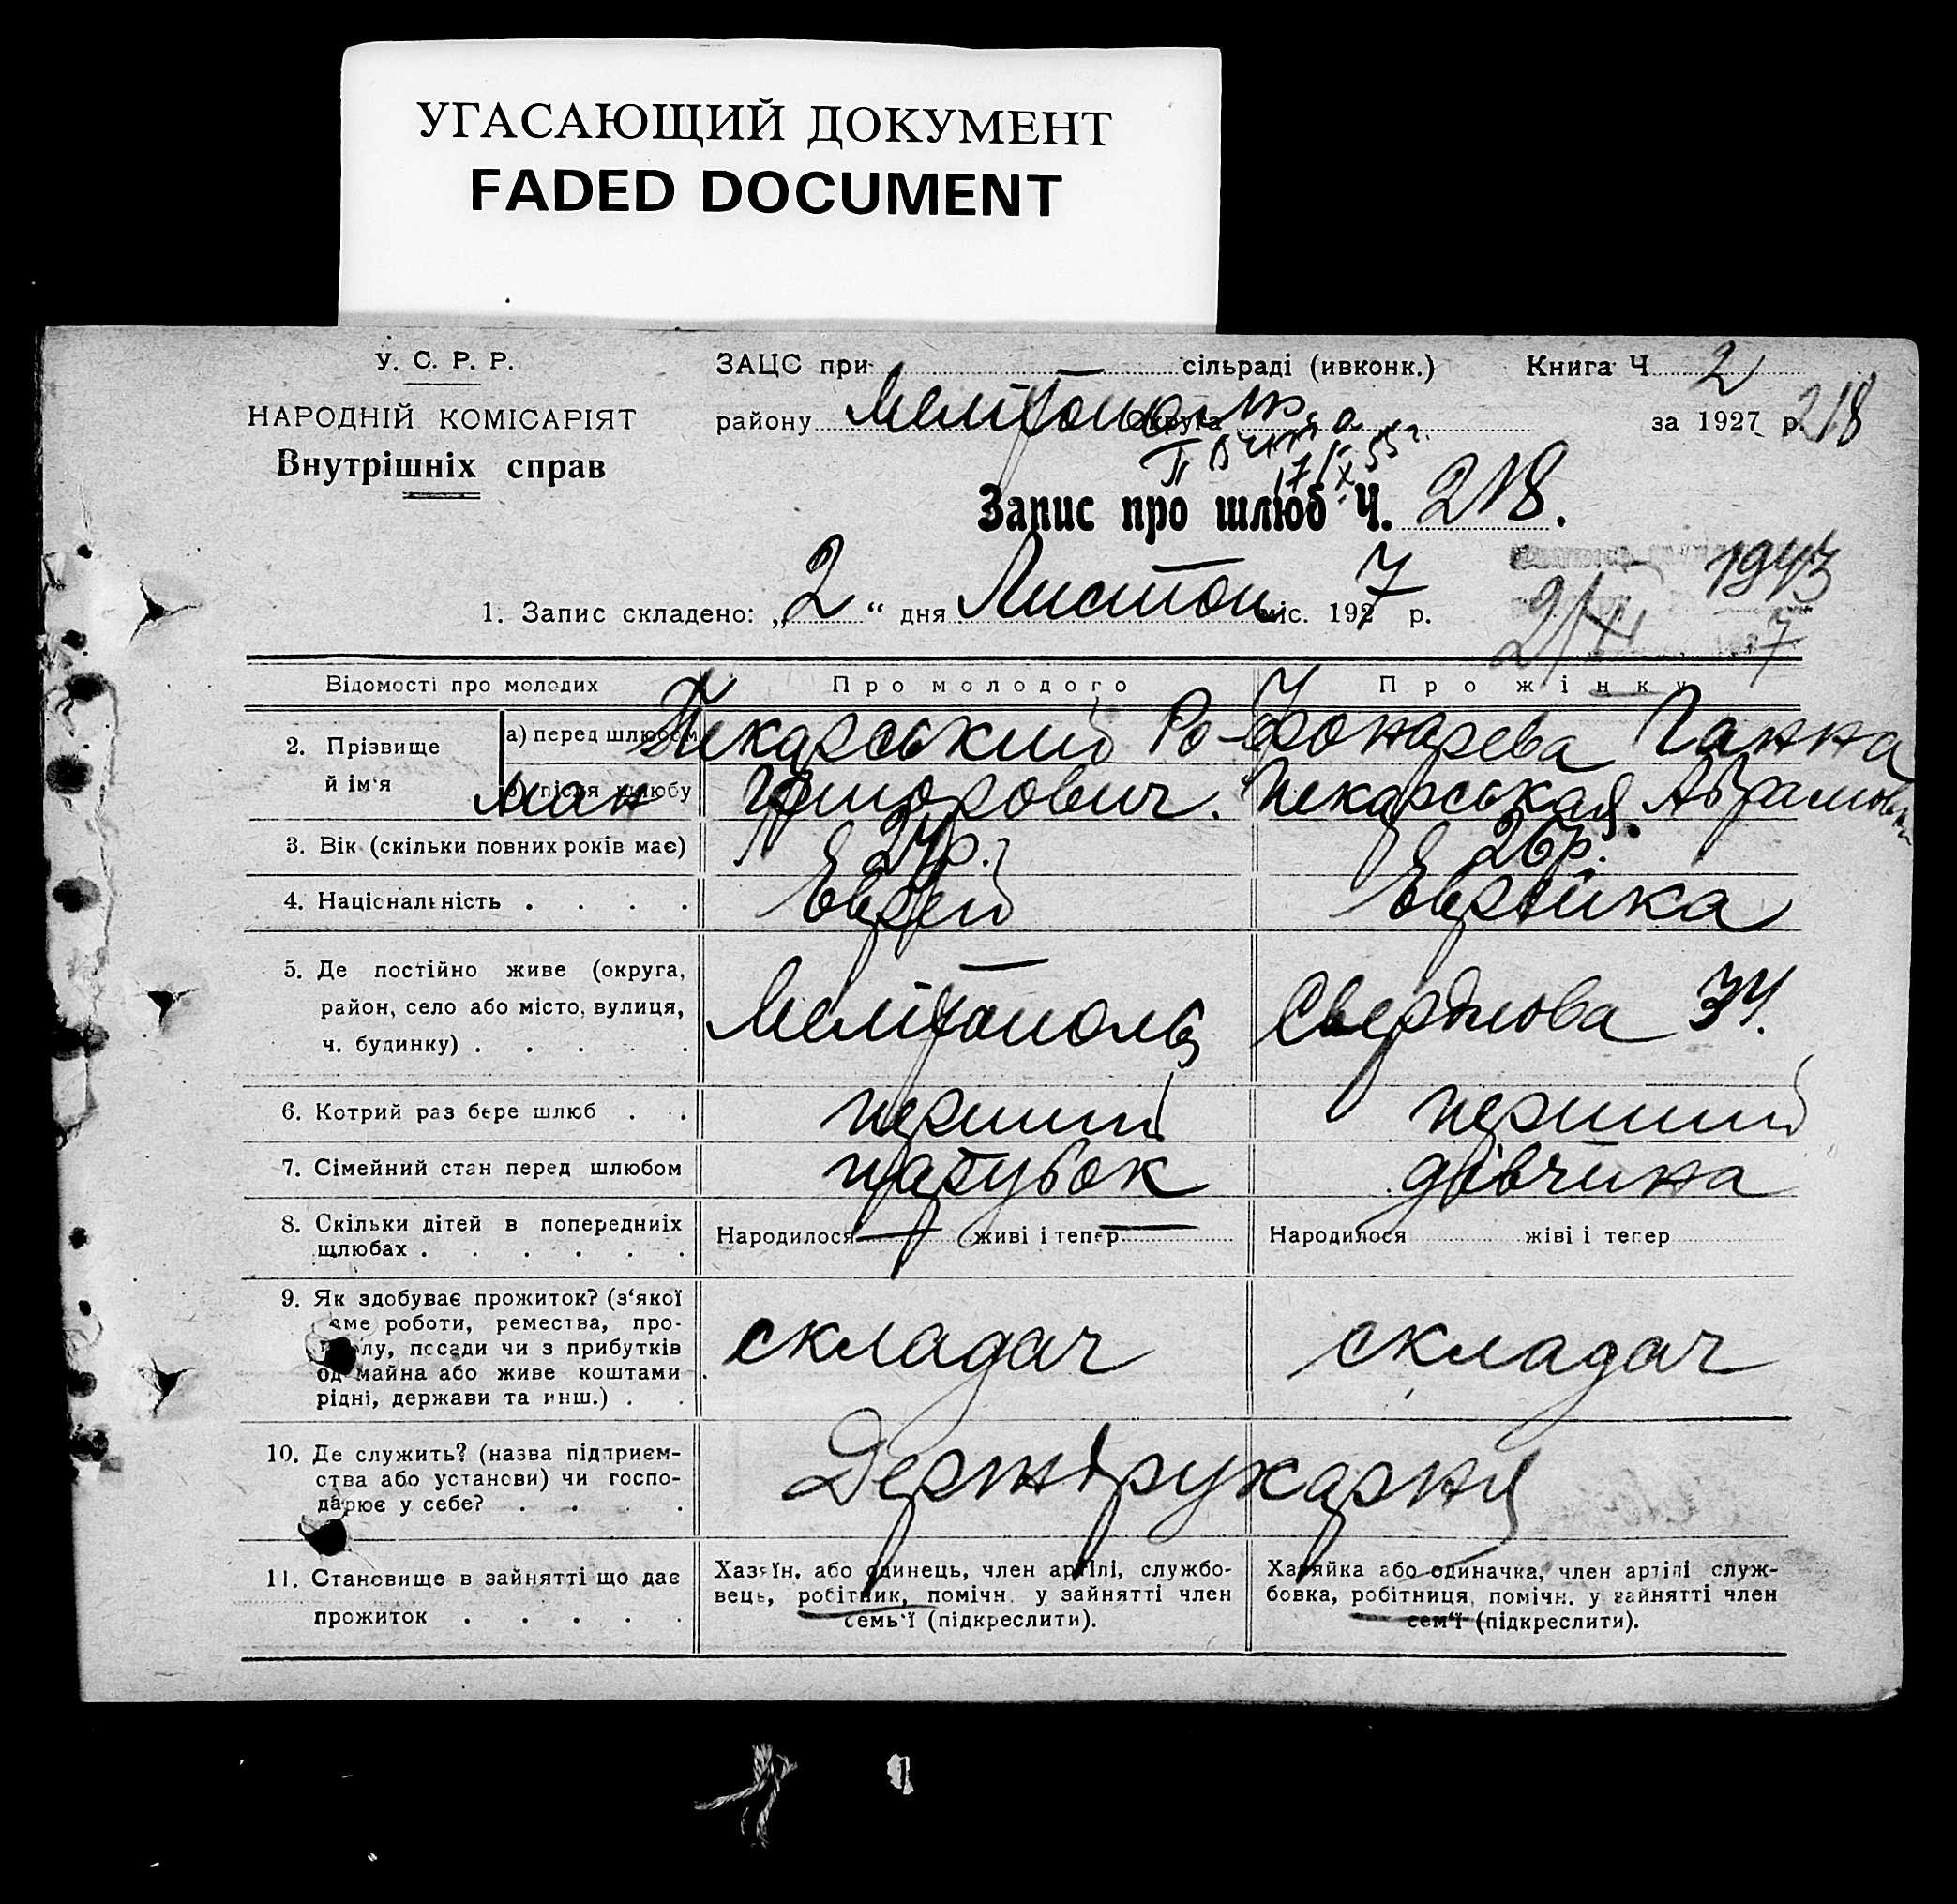 УГАСАЮЩИЙ ДОКУМЕНТ
FADED DOCUMENT
У. С. Р. Р.
НАРОДНІЙ КОМІСАРІЯТ
Внутрішніх справ
ЗАЦС при сільраді (ивконк.)
Книга Ч 2
району округа
за 1927 р. 218
Запис про шлюб Ч. 218.
1943
1. Запис складено: „2“ дня Листоп міс. 1927 р.
Відомості про молодих
Про молодого
Про жінку
2. Прізвище й ім‘я
а) перед шлюбом
Пекарський Ро-
Фонарева Ганна
б) після шлюбу
ман Григорович.
Пекарська Абрамовн
3. Вік (скільки повних років має)
26р.
4. Національність . . . .
Еврей
Еврейка
5. Де постійно живе (округа,
район, село або місто, вулиця,
ч. будинку) . . . . .
Мелітополь Свердлова
6. Котрий раз бере шлюб . .
перший
перший
7. Сімейний стан перед шлюбом
парубок
дівчина
8. Скільки дітей в попередниіх
шлюбах . . . . . .
Народилося — живі і тепер —
Народилося жіві і тепер
9. Як здобуває прожиток? (з‘якої
аме роботи, ремества, про-
лу, посади чи з прибутків
од майна або живе коштами
рідні, держави та инш.) . .
складач
складач
10. Де служить? (назва підприєм-
ства або установи) чи госпо-
дарює у себе? . . . .
Держдрукарня
11. Становище в зайнятті що дає
прожиток . . . . .
Хазяїн, або одинець, член артілі, службо-
вець, робітник, помічн. у зайнятті член
семь‘ї (підкреслити).
Хазяйка або одиначка, член артілі служ-
бовка, робітниця, помічн. у зайнятті член
сем‘ї (підкреслити).